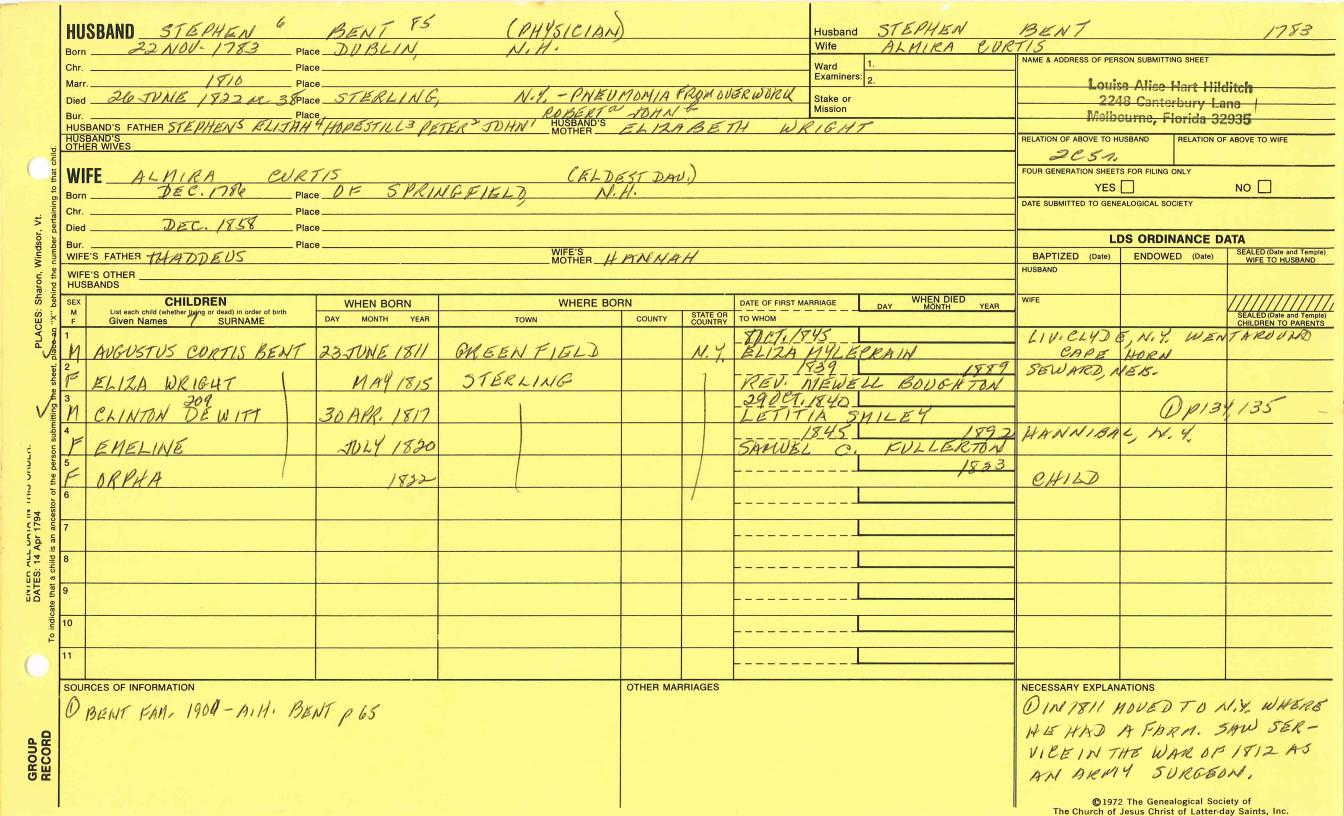 HUSBAND STEPHEN 6 BENT 85 (PHYSICIAN)
Born 22 NOV. 1783 Place DUBLIN, N.H.
Chr. Place
Marr. 1810 Place
Died 26 JUNE 1822 or 38 Place STERLING, N.Y. - PNEUMONIA FROM OVERWORK
Bur. Place ROBERT a JOHN b
HUSBAND'S FATHER STEPHEN 5 ELIJAH 4 HOPESTILL 3 PETER 2 JOHN 1 HUSBAND'S MOTHER ELIZABETH WRIGHT
HUSBAND'S OTHER WIVES
WIFE ALMIRA CURTIS (ELDEST DAU.)
Born DEC. 1786 Place OF SPRINGFIELD, N.H.
Chr. Place
Died DEC. 1858 Place
Bur. Place
WIFE'S FATHER THADDEUS WIFE'S MOTHER HANNAH
WIFE'S OTHER HUSBANDS
Husband STEPHEN BENT 1783
Wife ALMIRA CURTIS
Ward Examiners: 1.
2.
Stake or Mission
NAME & ADDRESS OF PERSON SUBMITTING SHEET
Louise Alise Hart Hilditch
2248 Canterbury Lane
Melbourne, Florida 32935
RELATION OF ABOVE TO HUSBAND RELATION OF ABOVE TO WIFE
2C5r.
FOUR GENERATION SHEETS FOR FILING ONLY
YES NO
DATE SUBMITTED TO GENEALOGICAL SOCIETY
LDS ORDINANCE DATA
BAPTIZED (Date) ENDOWED (Date) SEALED (Date and Temple) WIFE TO HUSBAND
HUSBAND
WIFE
SEALED (Date and Temple) CHILDREN TO PARENTS
SEX M F CHILDREN WHEN BORN WHERE BORN DATE OF FIRST MARRIAGE WHEN DIED
List each child (whether living or dead) in order of birth
Given Names 7 SURNAME DAY MONTH YEAR TOWN COUNTY STATE OR COUNTRY TO WHOM DAY MONTH YEAR
1 1845 LIV. CLYDE, N.Y. WENT AROUND
M AUGUSTUS CURTIS BENT 23 JUNE 1811 GREENFIELD N.Y. ELIZA CAPE HORN
2 1839 1889 SEWARD, NEB.
F ELIZA WRIGHT MAY 1815 STERLING REV. NEWELL BOUGHTON
3 209 29 OCT. 1840
M CLINTON DEWITT 30 APR. 1817 LETITIA SMILEY ① p134, 135
4 1845 1892 HANNIBAL, N.Y.
F EMELINE JULY 1820 SAMUEL C. FULLERTON
5 1823
F ORPHA 1822 CHILD
6
7
8
9
10
11
SOURCES OF INFORMATION
① BENT FAM. 1900 - A.H. BENT p 65
OTHER MARRIAGES
NECESSARY EXPLANATIONS
① IN 1811 MOVED TO N.Y. WHERE
HE HAD A FARM. SAW SER-
VICE IN THE WAR OF 1812 AS
AN ARMY SURGEON.
©1972 The Genealogical Society of
The Church of Jesus Christ of Latter-day Saints, Inc.
ENTER ALL DATA IN THIS ORDER:
DATES: 14 Apr 1794 PLACES: Sharon, Windsor, Vt.
To indicate that a child is an ancestor of the person submitting the sheet, place an "X" behind the number pertaining to that child.
GROUP RECORD